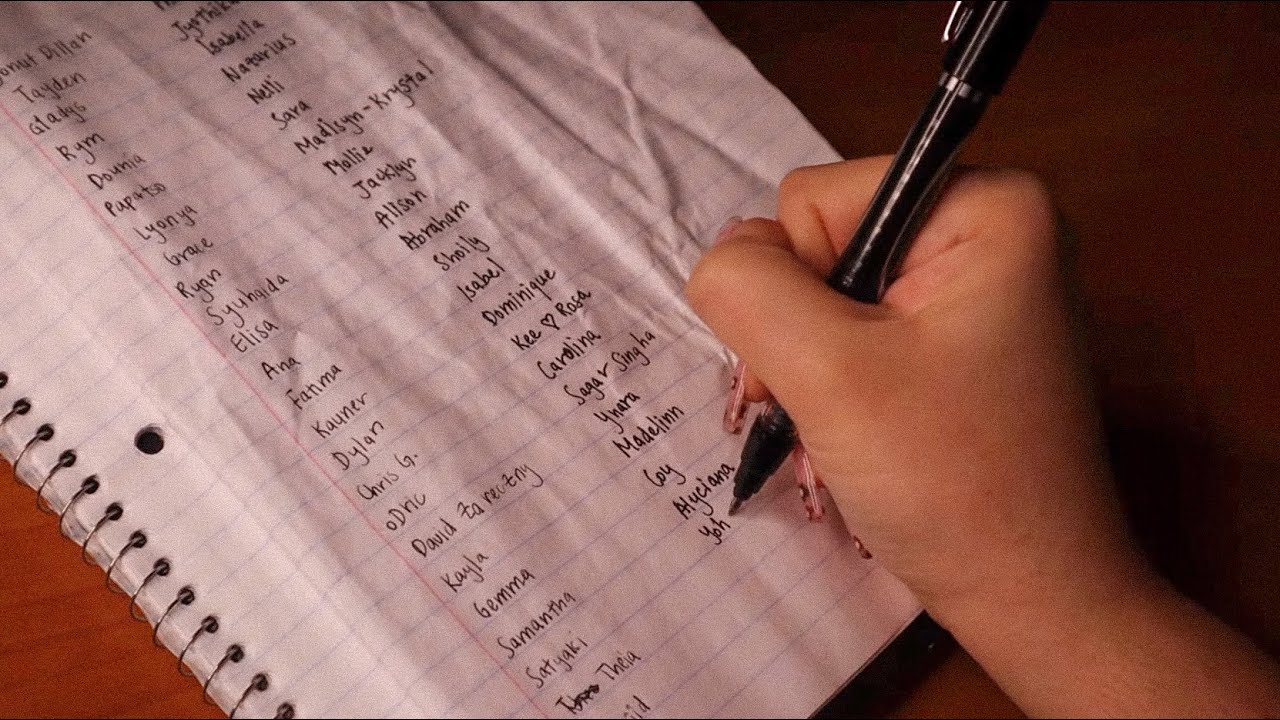 Donut Dillan
Tayden
Gladys
Rym
Dounia
Papatso
Lyonya
Grace
Ryan
Syuhaida
Elisa
Ana
Fatima
Kayner
Dylan
Chris G.
oDric
David Zarectny
Kayla
Gemma
Samantha
Satyaki
Theia
Jyothika
Isabella
Natarius
Nelli
Sara
Madisyn-Krystal
Mollie
Jacklyn
Alison
Abraham
Shoily
Isabel
Dominique
Kee ♡ Rosa
Carolina
Sagar Singha
Ynara
Madelinn
Coy
Alyciana
Yoh